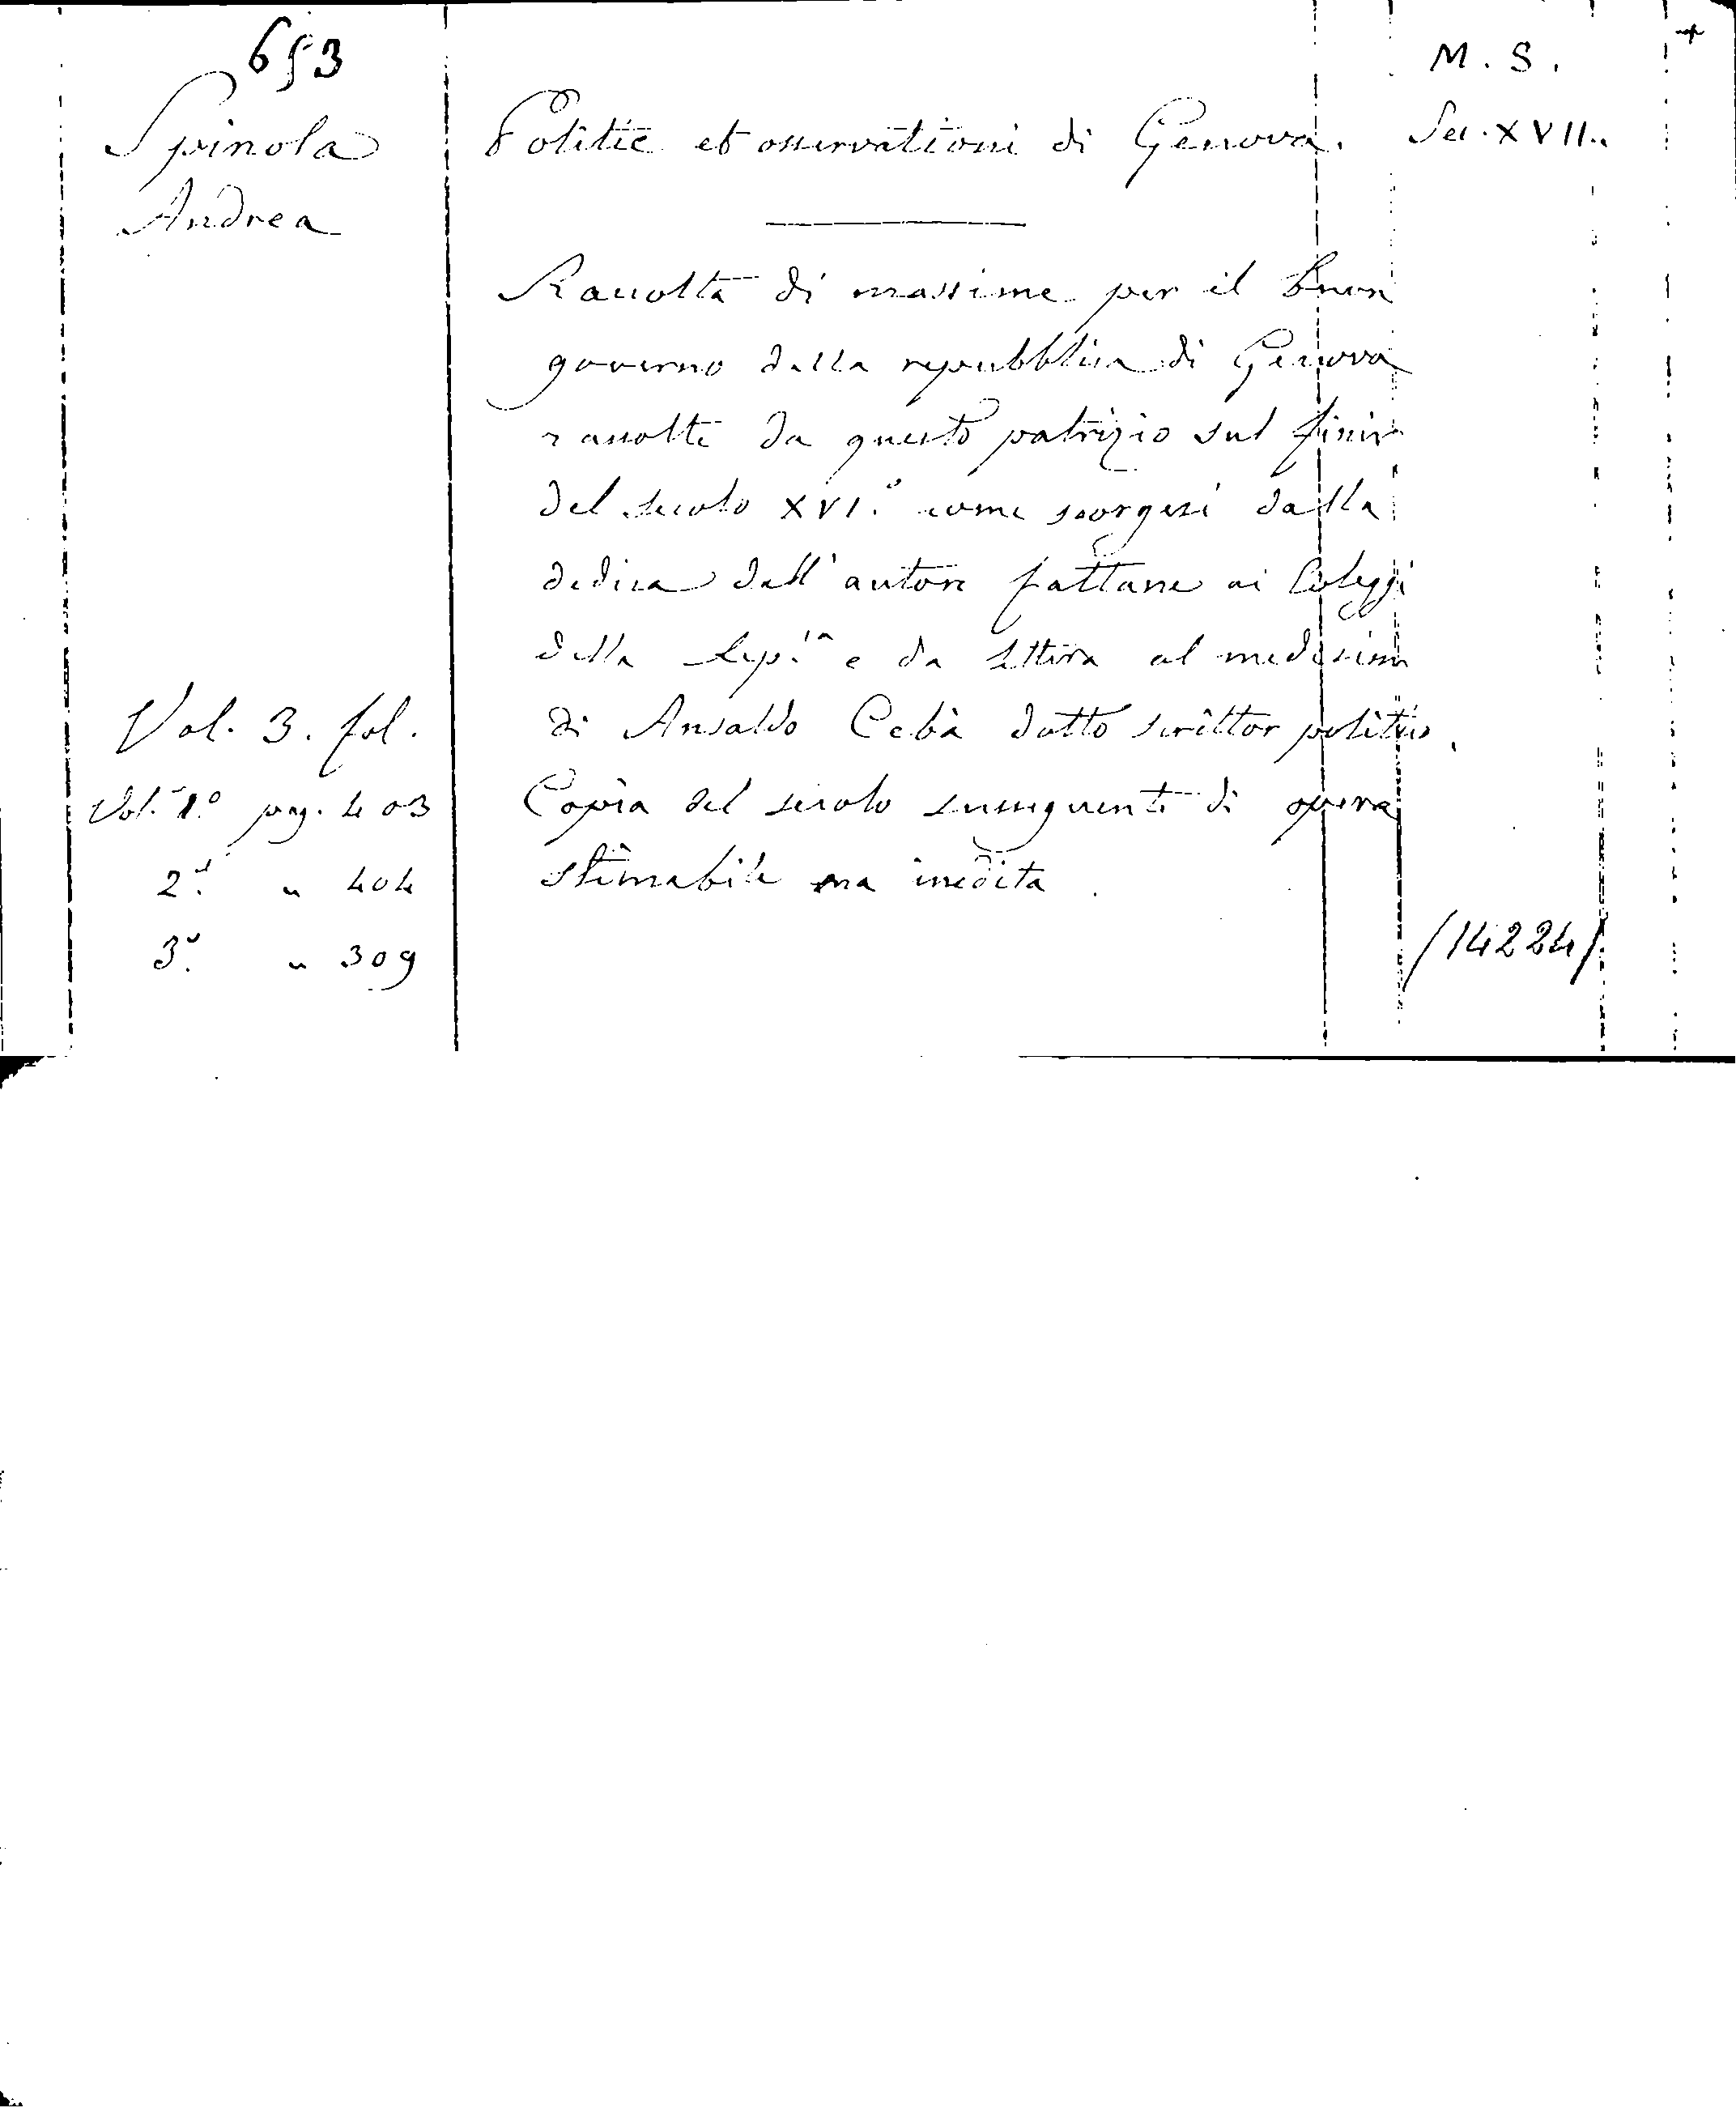 653
Spinola
Andrea
Politic et osservationi di Genova.
M. S.
Sec. XVII.
Raccolta di massime per il buon
governo della repubblica di Genova
raccolte da questo patrizio sul finir
del secolo XVI.° come scorgesi dalla
dedica dell'autore fattane ai Colleggi
della Rep.ca e da lettera al medesimo
di Ansaldo Cebà dotto scrittor politico.
Copia del secolo susseguente di opera
stimabile ma inedita.
Vol. 3. fol.
Vol. 1.° pag. 403
2.° " 404
3.° " 309
/14224/